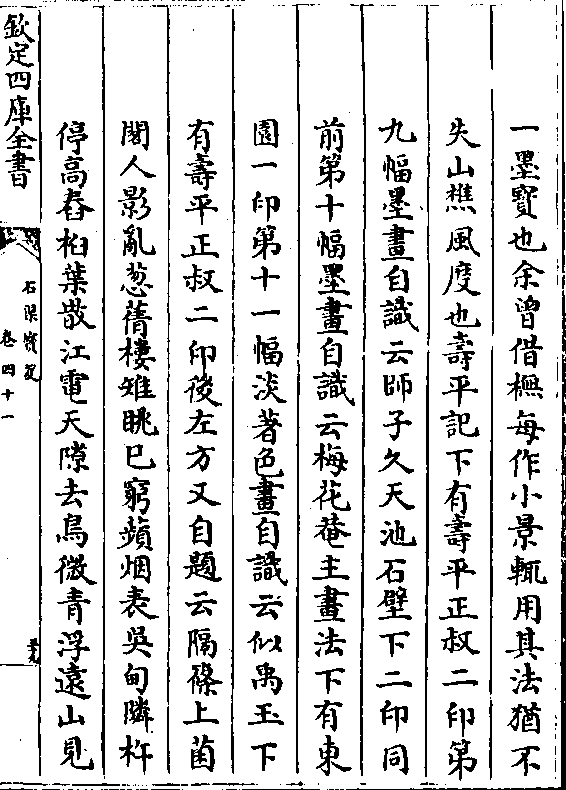 一墨寶也余曾借橅每作小景輒用其法猶不
失山樵風度也壽平記下有壽平正叔二印第
九幅墨畫自識云師子久天池石壁下二印同
前第十幅墨畫自識云梅花菴主畫法下有東
園一印第十一幅淡著色畫自識云似禹玉下
有壽平正叔二印後左方又自題云隔篠上菌
閣人影亂葱蒨棲雉眺已窮蘋烟表吳甸隣杵
停高舂桕葉散江電天隙去鳥微青浮遠山見
欽定四庫全書
石渠寶笈
卷四十一